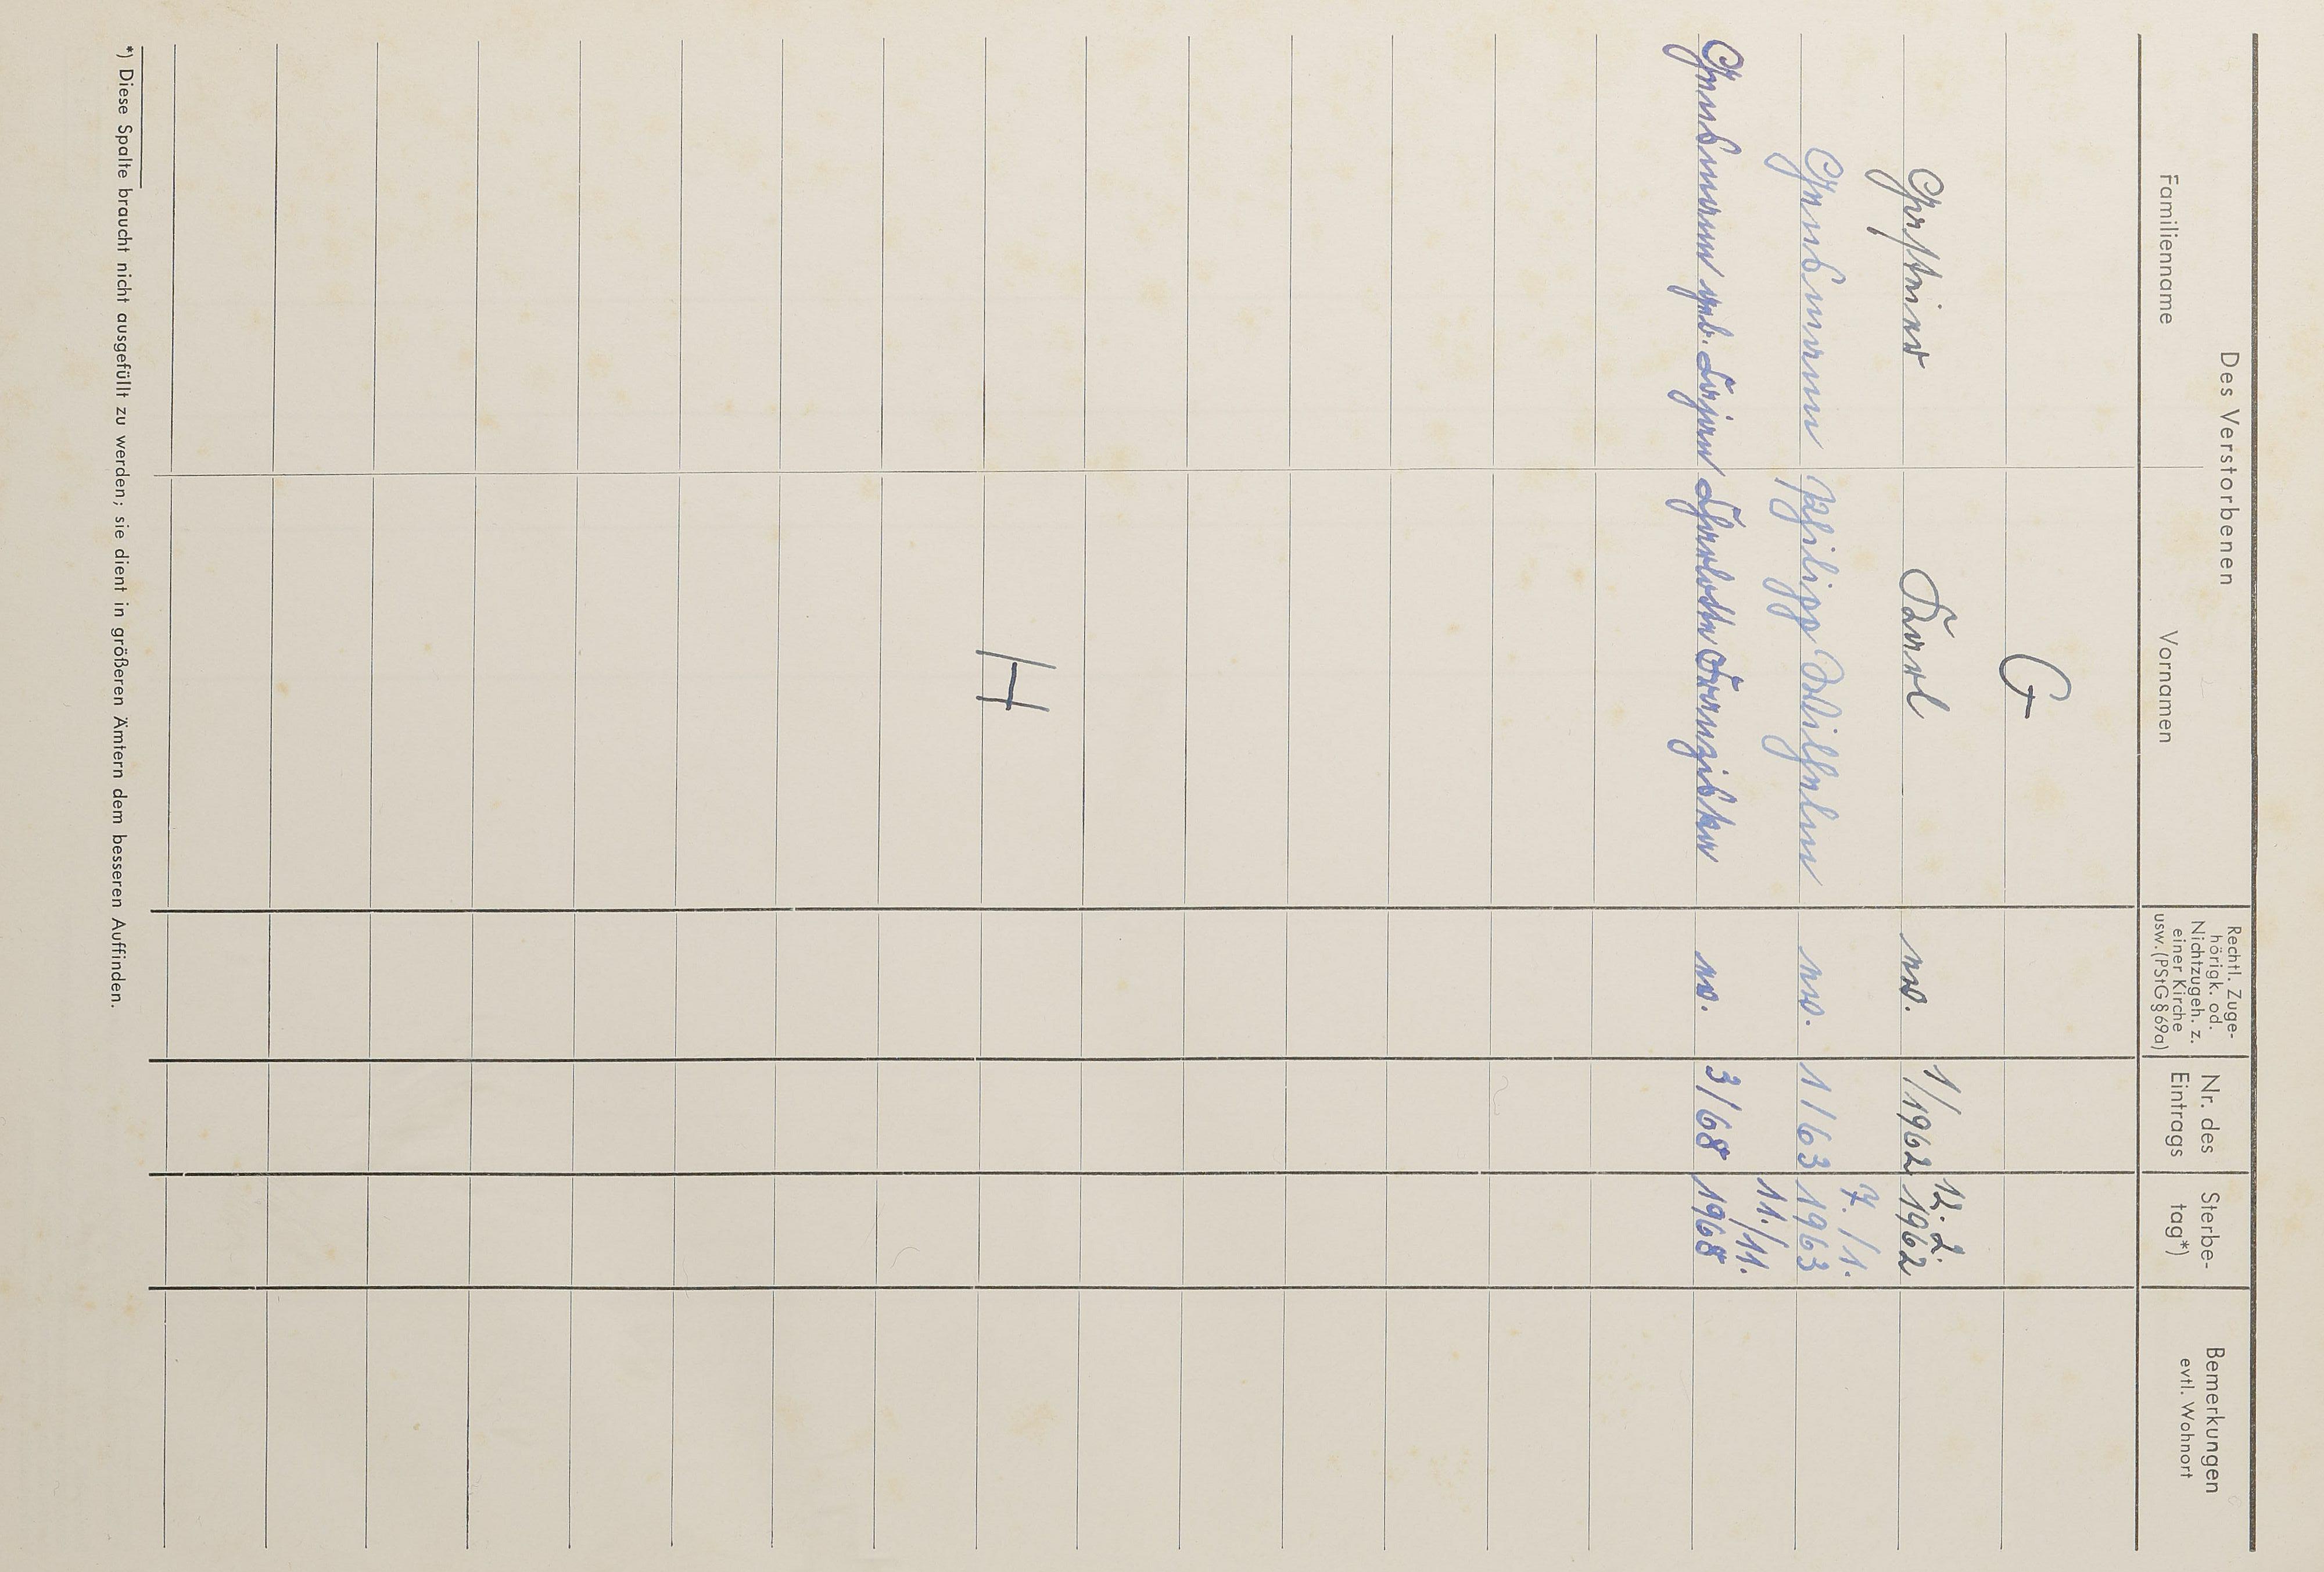 Des Verstorbenen
Familienname
Vornamen
Rechtl. Zuge-
hörigk. od.
Nichtzugeh. z.
einer Kirche
usw. (PStG § 69a)
Nr. des
Eintrags
Sterbe-
tag*)
Bemerkungen
evtl. Wohnort
G
Karl ev. 1/1962 12.2.
1962
Philipp Wilhelm ev. 1/63 7./1.
1963
geb. Charlotte Franziska ev. 3/68 11./11.
1968
H
*) Diese Spalte braucht nicht ausgefüllt zu werden; sie dient in größeren Ämtern dem besseren Auffinden.